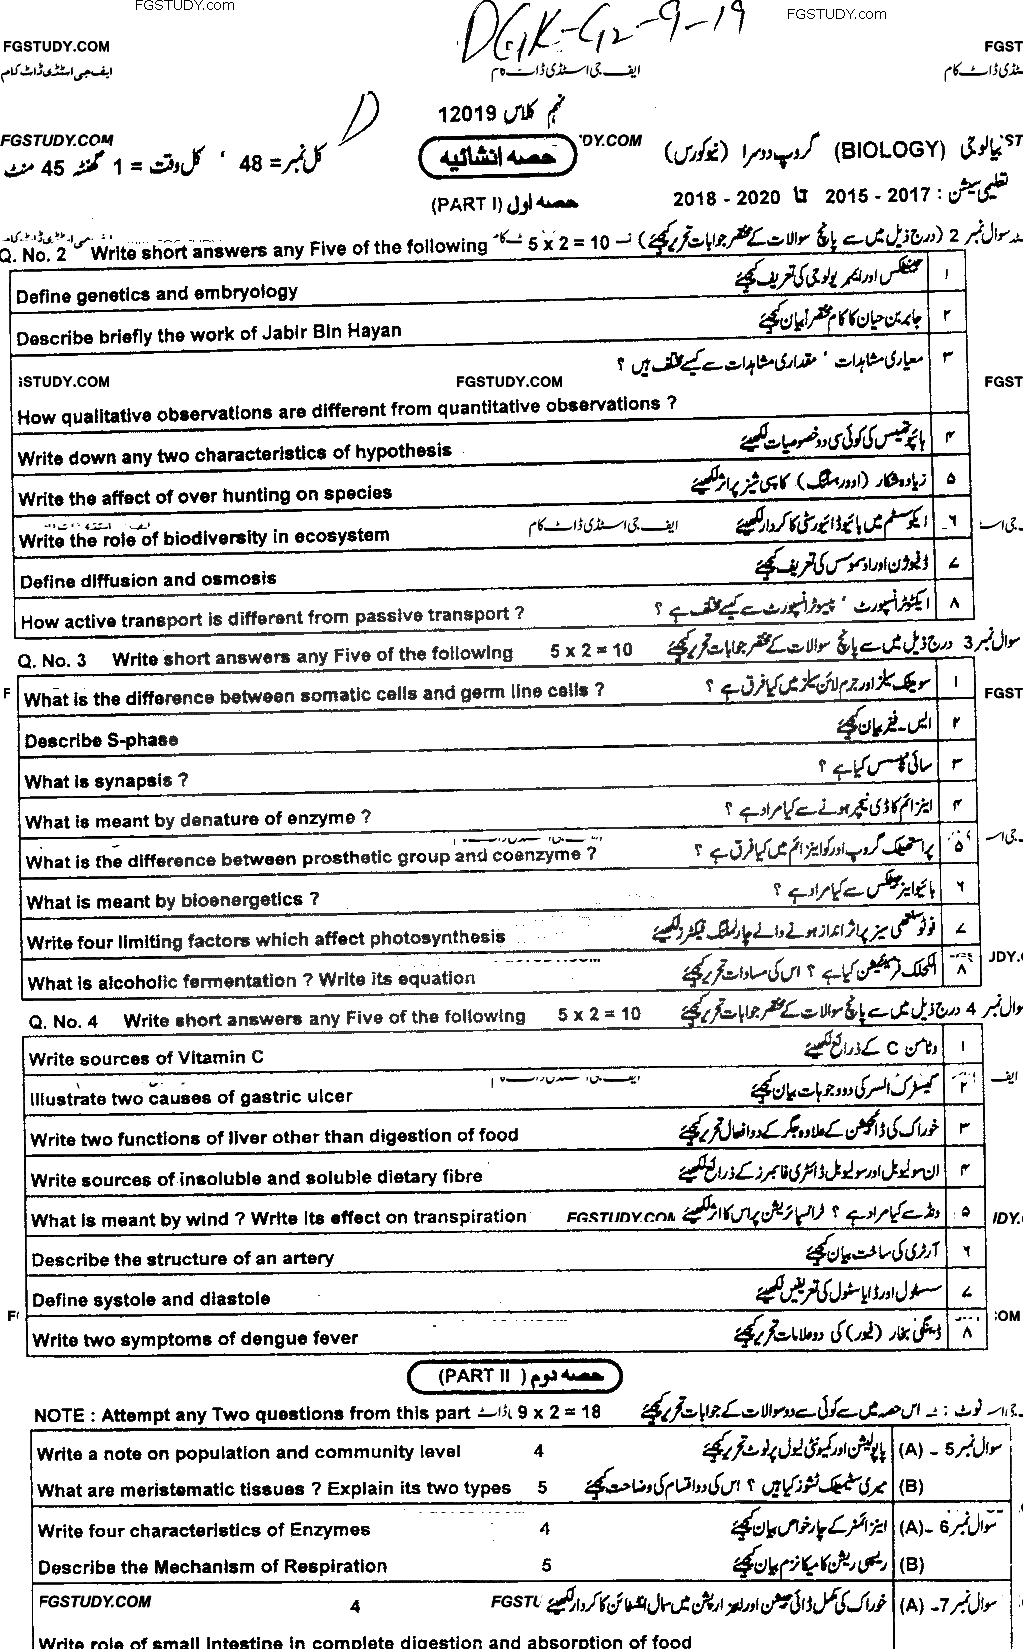 FGSTUDY.COM
FGSTUDY.com
DGK-G2-9-19
FGSTUDY.COM
ایف جی اسٹڈی ڈاٹ کام
ایف جی اسٹڈی ڈاٹ کام
FGST
سٹڈی ڈاٹ کام
D
نہم کلاس 12019
FGSTUDY.COM
DY.COM
ST
بیالوجی (BIOLOGY) گروپ دوسرا (نیو کورس)
حصہ انشائیہ
کل نمبر = 48 ' کل وقت = 1 گھنٹہ 45 منٹ
تعلیمی سیشن : 2017 - 2015 تا 2020 - 2018
حصہ اول (PART I)
سوال نمبر 2 (درج ذیل میں سے پانچ سوالات کے مختصر جوابات تحریر کیجئے)
Q. No. 2 Write short answers any Five of the following 5 x 2 = 10
۱ جینیٹکس اور ایمبریولوجی کی تعریف کیجئے
Define genetics and embryology
۲ جابر بن حیان کا کام مختصراً بیان کیجئے
Describe briefly the work of Jabir Bin Hayan
۳ معیاری مشاہدات ' مقداری مشاہدات سے کیسے مختلف ہیں ؟
iSTUDY.COM
FGSTUDY.COM
FGST
How qualitative observations are different from quantitative observations ?
۴ ہائپوتھیسس کی کوئی سی دو خصوصیات لکھیئے
Write down any two characteristics of hypothesis
۵ زیادہ شکار (اوور ہنٹنگ) کا سپی شیز پر اثر لکھیئے
Write the affect of over hunting on species
۶ ایکوسسٹم میں بائیوڈائیورسٹی کا کردار لکھیئے
ایف جی اسٹڈی ڈاٹ کام
Write the role of biodiversity in ecosystem
۷ ڈفیوژن اور اوسموسس کی تعریف کیجئے
Define diffusion and osmosis
۸ ایکٹو ٹرانسپورٹ ' پیسو ٹرانسپورٹ سے کیسے مختلف ہے ؟
How active transport is different from passive transport ?
سوال نمبر 3 درج ذیل میں سے پانچ سوالات کے مختصر جوابات تحریر کیجئے
Q. No. 3 Write short answers any Five of the following 5 x 2 = 10
۱ سومیٹک سیلز اور جرم لائن سیلز میں کیا فرق ہے ؟
F
FGST
What is the difference between somatic cells and germ line cells ?
۲ ایس - فیز بیان کیجئے
Describe S-phase
۳ سائی نیپسس کیا ہے ؟
What is synapsis ?
۴ اینزائم کا ڈی نیچر ہونے سے کیا مراد ہے ؟
What is meant by denature of enzyme ?
۵ پراستھیٹک گروپ اور کو اینزائم میں کیا فرق ہے ؟
What is the difference between prosthetic group and coenzyme ?
۶ بائیو اینرجیٹکس سے کیا مراد ہے ؟
What is meant by bioenergetics ?
۷ فوٹو سنتھی سیز پر اثر انداز ہونے والے چار لمٹنگ فیکٹرز لکھیئے
Write four limiting factors which affect photosynthesis
۸ الکحلک فرمنٹیشن کیا ہے ؟ اس کی مساوات تحریر کیجئے
JDY.
What is alcoholic fermentation ? Write its equation
سوال نمبر 4 درج ذیل میں سے پانچ سوالات کے مختصر جوابات تحریر کیجئے
Q. No. 4 Write short answers any Five of the following 5 x 2 = 10
۱ وٹامن C کے ذرائع لکھیئے
Write sources of Vitamin C
۲ گیسٹرک السر کی دو وجوہات بیان کیجئے
ایف
Illustrate two causes of gastric ulcer
۳ خوراک کی ڈائجیشن کے علاوہ جگر کے دو افعال تحریر کیجئے
Write two functions of liver other than digestion of food
۴ ان سولیوبل اور سولیوبل ڈائٹری فائبرز کے ذرائع لکھیئے
Write sources of insoluble and soluble dietary fibre
۵ ونڈ سے کیا مراد ہے ؟ ٹرانسپائریشن پر اس کا اثر لکھیئے
What is meant by wind ? Write its effect on transpiration
FGSTUDY.COM
IDY.
۶ آرٹری کی ساخت بیان کیجئے
Describe the structure of an artery
۷ سسٹول اور ڈایاسٹول کی تعریفیں لکھیئے
Define systole and diastole
F
OM
۸ ڈینگی بخار (فیور) کی دو علامات تحریر کیجئے
Write two symptoms of dengue fever
حصہ دوم (PART II)
نوٹ : اس حصہ میں سے کوئی سے دو سوالات کے جوابات تحریر کیجئے
NOTE : Attempt any Two questions from this part 9 x 2 = 18
سوال نمبر 5 - (A) پاپولیشن اور کمیونٹی لیول پر نوٹ تحریر کیجئے
Write a note on population and community level 4
(B) میری سٹیمیٹک ٹشوز کیا ہیں ؟ اس کی دو اقسام کی وضاحت کیجئے
What are meristematic tissues ? Explain its two types 5
سوال نمبر 6 - (A) اینزائمز کے چار خواص بیان کیجئے
Write four characteristics of Enzymes 4
(B) ریسپی ریشن کا میکانزم بیان کیجئے
Describe the Mechanism of Respiration 5
سوال نمبر 7- (A) خوراک کی مکمل ڈائی جیشن اور ایبزارپشن میں سمال انٹسٹائن کا کردار لکھیئے
FGSTUDY.COM
4
FGSTU
Write role of small Intestine in complete digestion and absorption of food